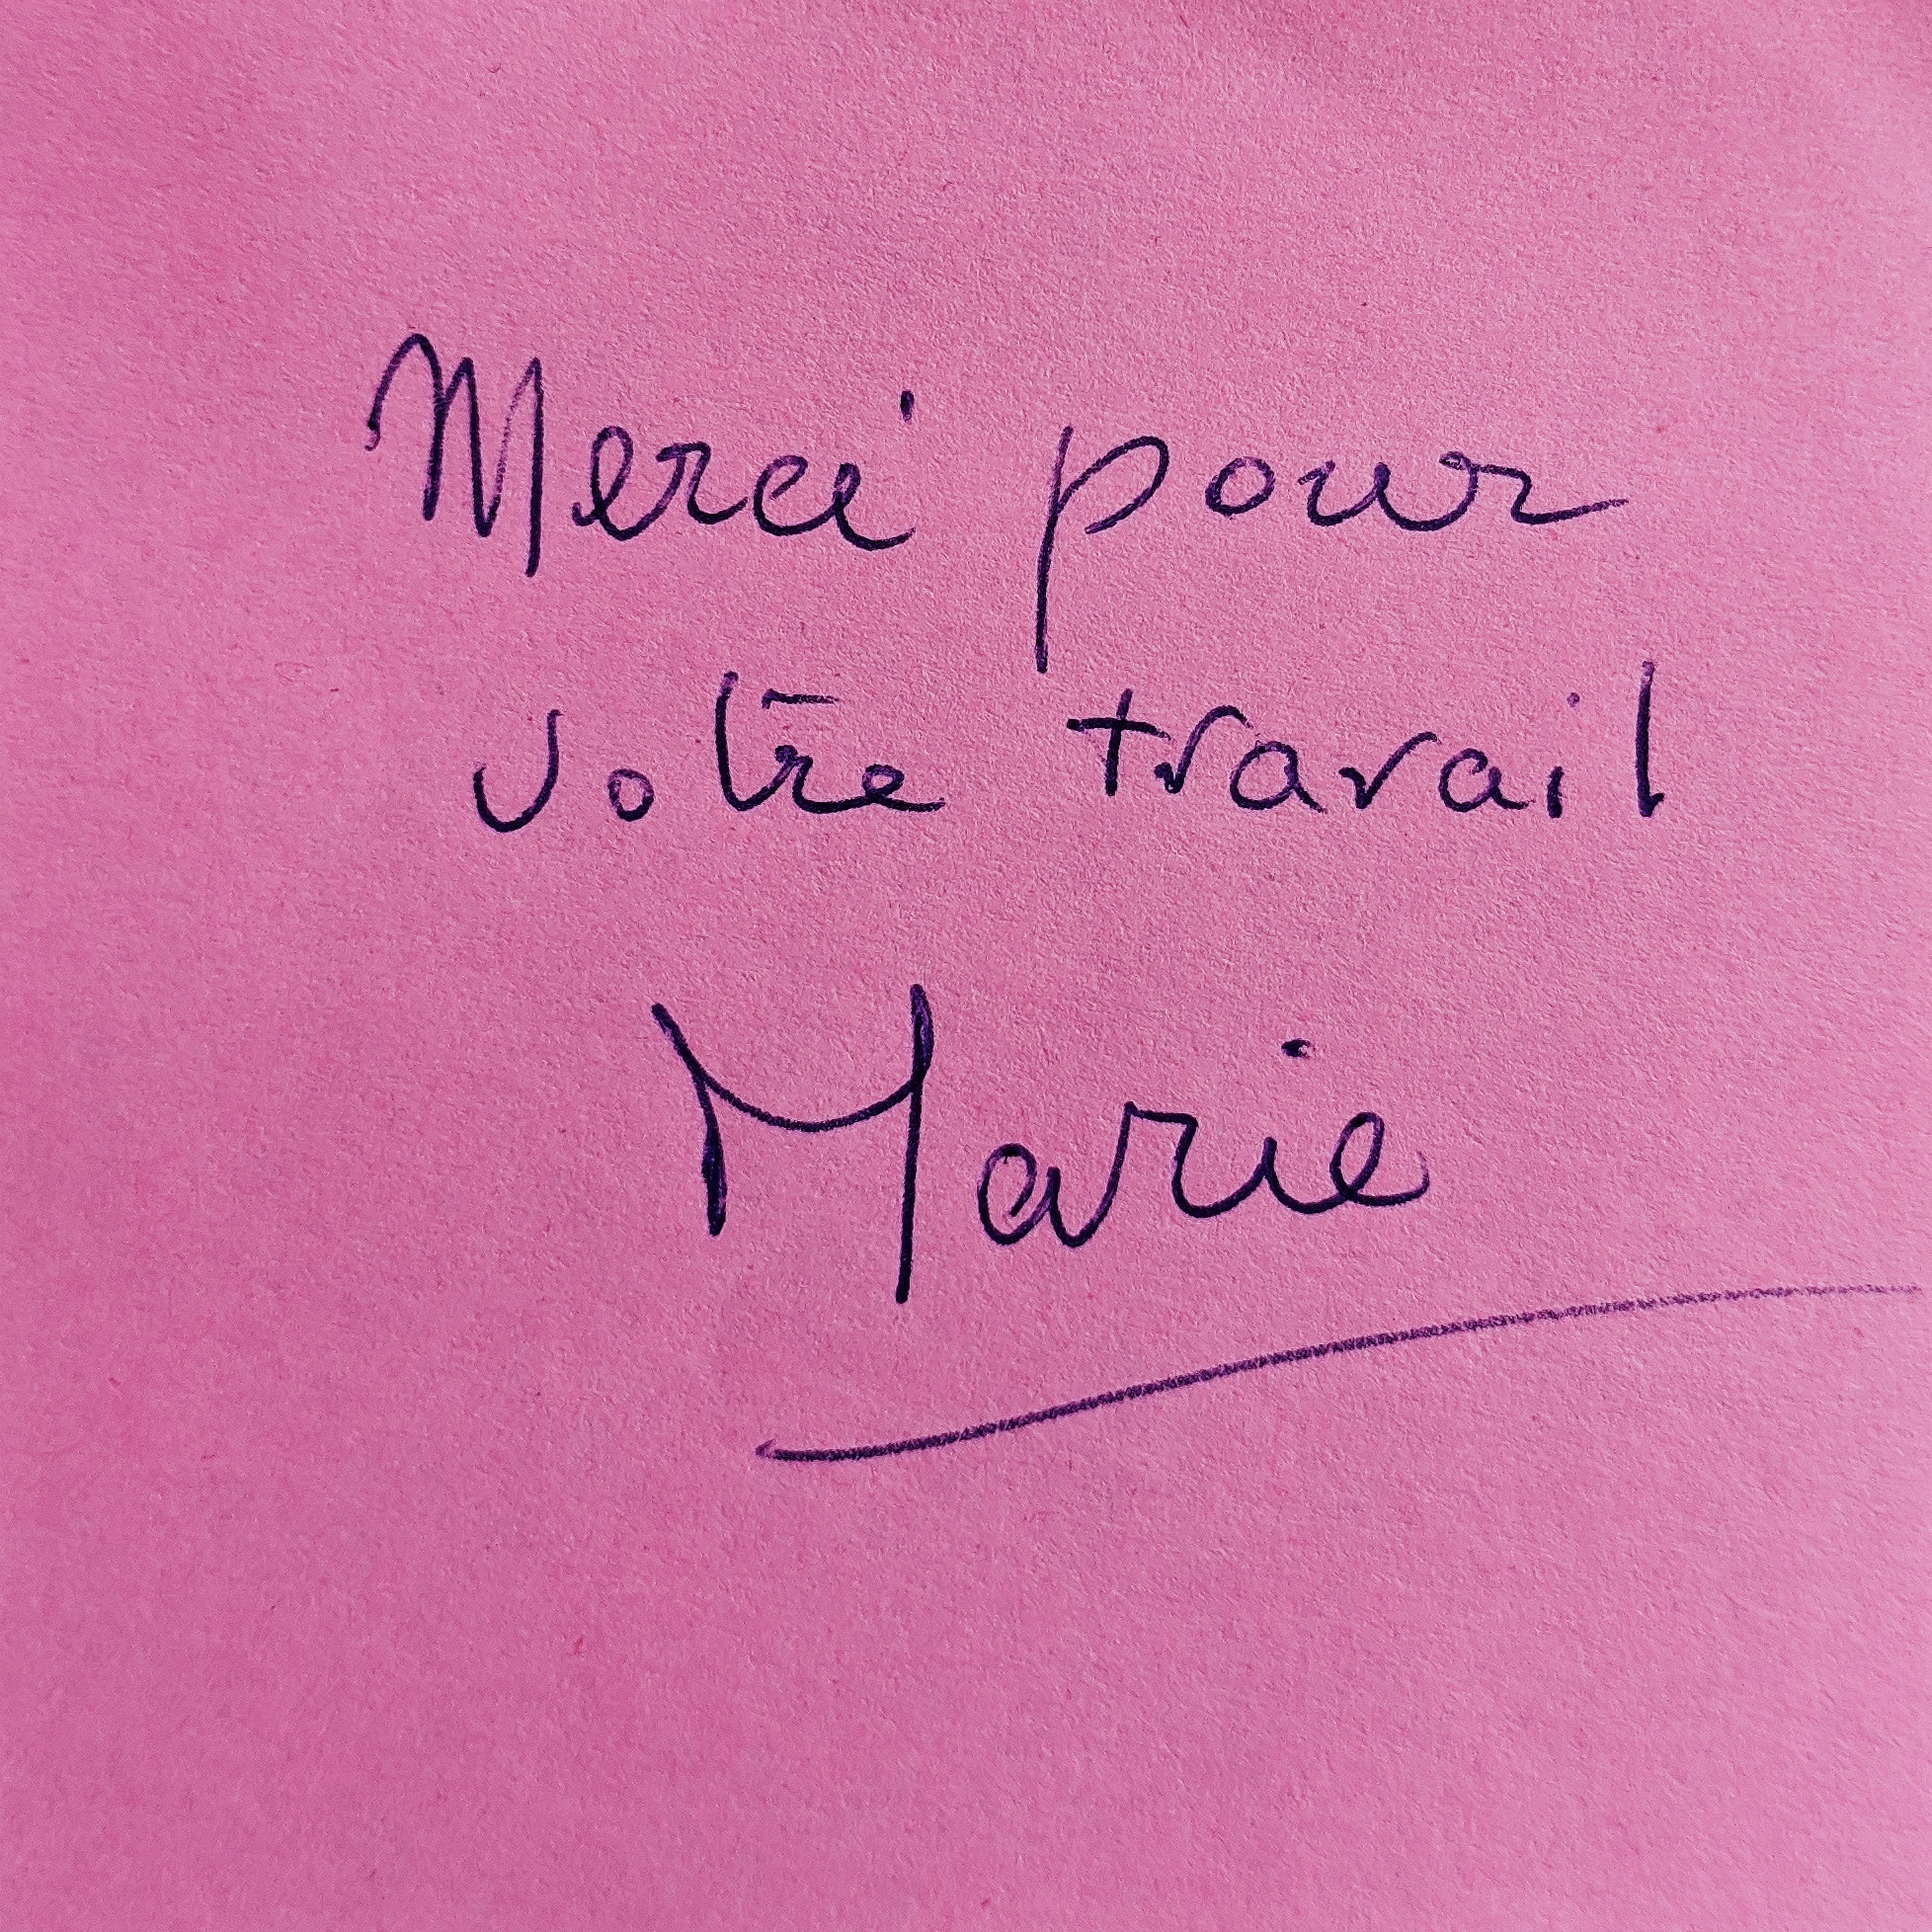 Merci pour
votre travail
Marie